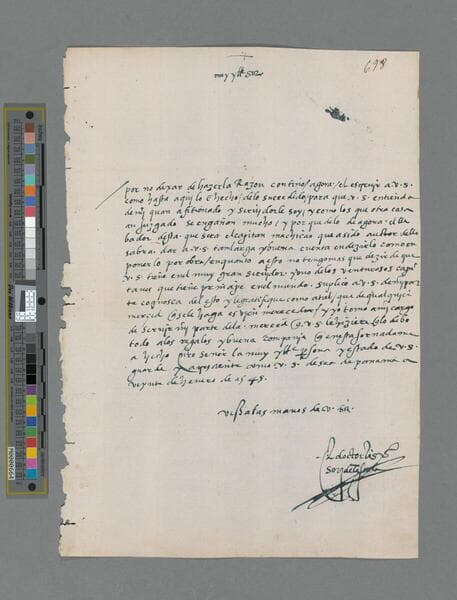 698
muy yllᵉ sor
por no dexar de hazer la Razon contino / agora / el escrevir a v. s.
como hasta aqui lo e hecho / de lo sucedido / para que v. s. entienda
de mi quan afitionado y servidor le soy / y como los que otra cosa
an juzgado se engañan mucho / y por que de lo de agora el lle
bador desta que sera el capitan machicao que a sido autor dello
sabra dar a v. s. tan larga y buena cuenta en dezirlo como en
ponerlo por obra / en quanto a esto no tengo mas que dezir de que
v. s. tiene en el muy gran servidor y uno de los venturosos capi
tanes que tiene principe en el mundo. suplico a v. s. de mi par
te cognosca del esto y le gratifique como a tal / que de qualquier
merced q se le haga es bien merecedor / y yo tomo a mi cargo
de servir mi parte de la merced q v. s. le hiziere
todo a los regalos y buena compañia q en esta jornada me
a hecho nro señor la muy yllᵉ persona y estado de v. s.
guarde y acresciente como v. s. desea de panama a
veynte de henero de 45.
vesa las manos de v. sa
El doctor